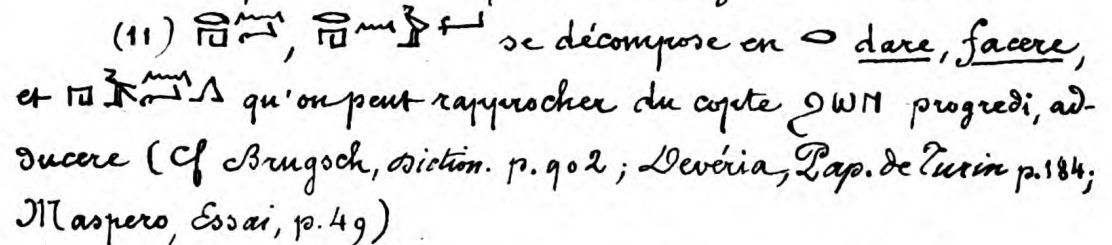 (11) , se décompose en 𓂋 dare, facere,
et qu'on peut rapprocher du copte ϩⲱⲛ progredi, ad-
ducere (Cf Brugsch, diction. p. 902; Devéria, Pap. de Turin p. 184;
Maspero, Essai, p. 49)